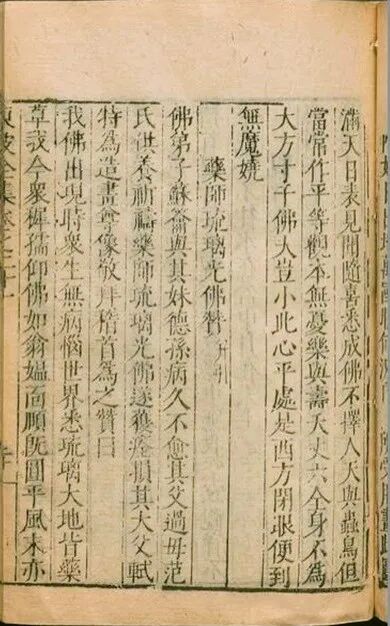 滿天日表見聞隨喜悉成佛不擇人天與蟲鳥但
當常作平等觀本無憂樂與壽夭丈六全身不為
大方寸千佛夫豈小此心平處是西方閉眼便到
無魔嬈
藥師琉璃光佛贊
佛弟子蘇籥與其妹德孫病久不愈其父過母范
氏供養祈禱藥師琉璃光佛遂獲痊損其大父軾
特為造畫尊像敬拜稽首為之贊曰
我佛出現時衆生無病惱世界悉琉璃大地皆藥
草我今衆稚孺仰佛如翁媼面頤既圓平風末亦